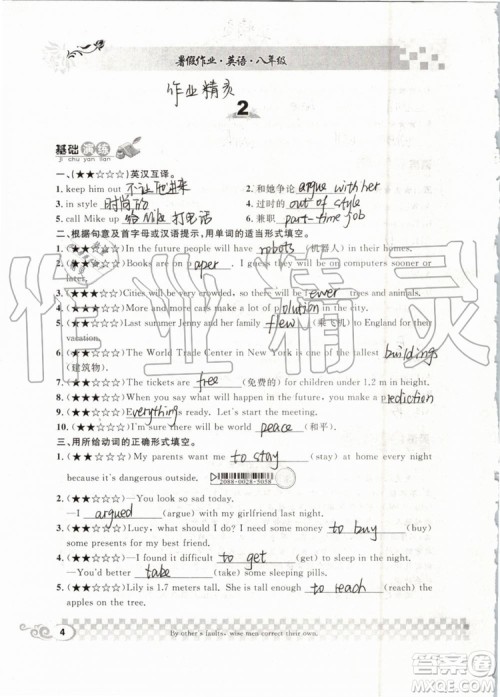 暑假作业·英语·八年级
作业精灵
2
基础演练
ji chu yan lian
一、(★★☆☆☆)英汉互译。
1. keep him out 不让他进来 2. 和她争论 argue with her
3. in style 时尚的 4. 过时的 out of style
5. call Mike up 给Mike打电话 6. 兼职 part-time job
二、根据句意及首字母或汉语提示,用单词的适当形式填空。
1. (★★☆☆☆)In the future people will have robots (机器人) in their homes.
2. (★★☆☆☆)Books are on paper. I guess they will be on computers sooner or
later.
3. (★★★☆☆)Cities will be very crowded, so there will be fewer trees and animals.
4. (★★★☆☆)More and more cars make a lot of pollution in the world.
5. (★★★☆☆)Last summer Jenny and her family flew (乘飞机) to England for their
vacation.
6. (★★☆☆☆)The World Trade Center in New York is one of the tallest buildings
(建筑物).
7. (★★☆☆☆)The tickets are free (免费的) for children under 1.2 m in height.
8. (★★☆☆☆)When you say what will happen in the future, you make a prediction.
9. (★★☆☆☆)Everything is ready. Let's start the meeting.
10. (★★☆☆☆)I'm sure there will be world peace (和平).
三、用所给动词的正确形式填空。
1. (★★☆☆☆)My parents want me to stay (stay) at home every night
because it's dangerous outside.
2088-0028-5058
2. (★★☆☆☆)—You look so sad today.
—I argued (argue) with my girlfriend last night.
3. (★★☆☆☆)Lucy, what should I do? I need to buy (buy)
some presents for my best friend.
4. (★★☆☆☆)—I found it difficult to get (get) to sleep in the night.
—You'd better take (take) some sleeping pills.
5. (★★☆☆☆)Lily is 1.7 meters tall. She is tall enough to reach (reach) the
apples on the tree.
4
By other's faults, wise men correct their own.
作业精灵
答案圈
MXQE.COM